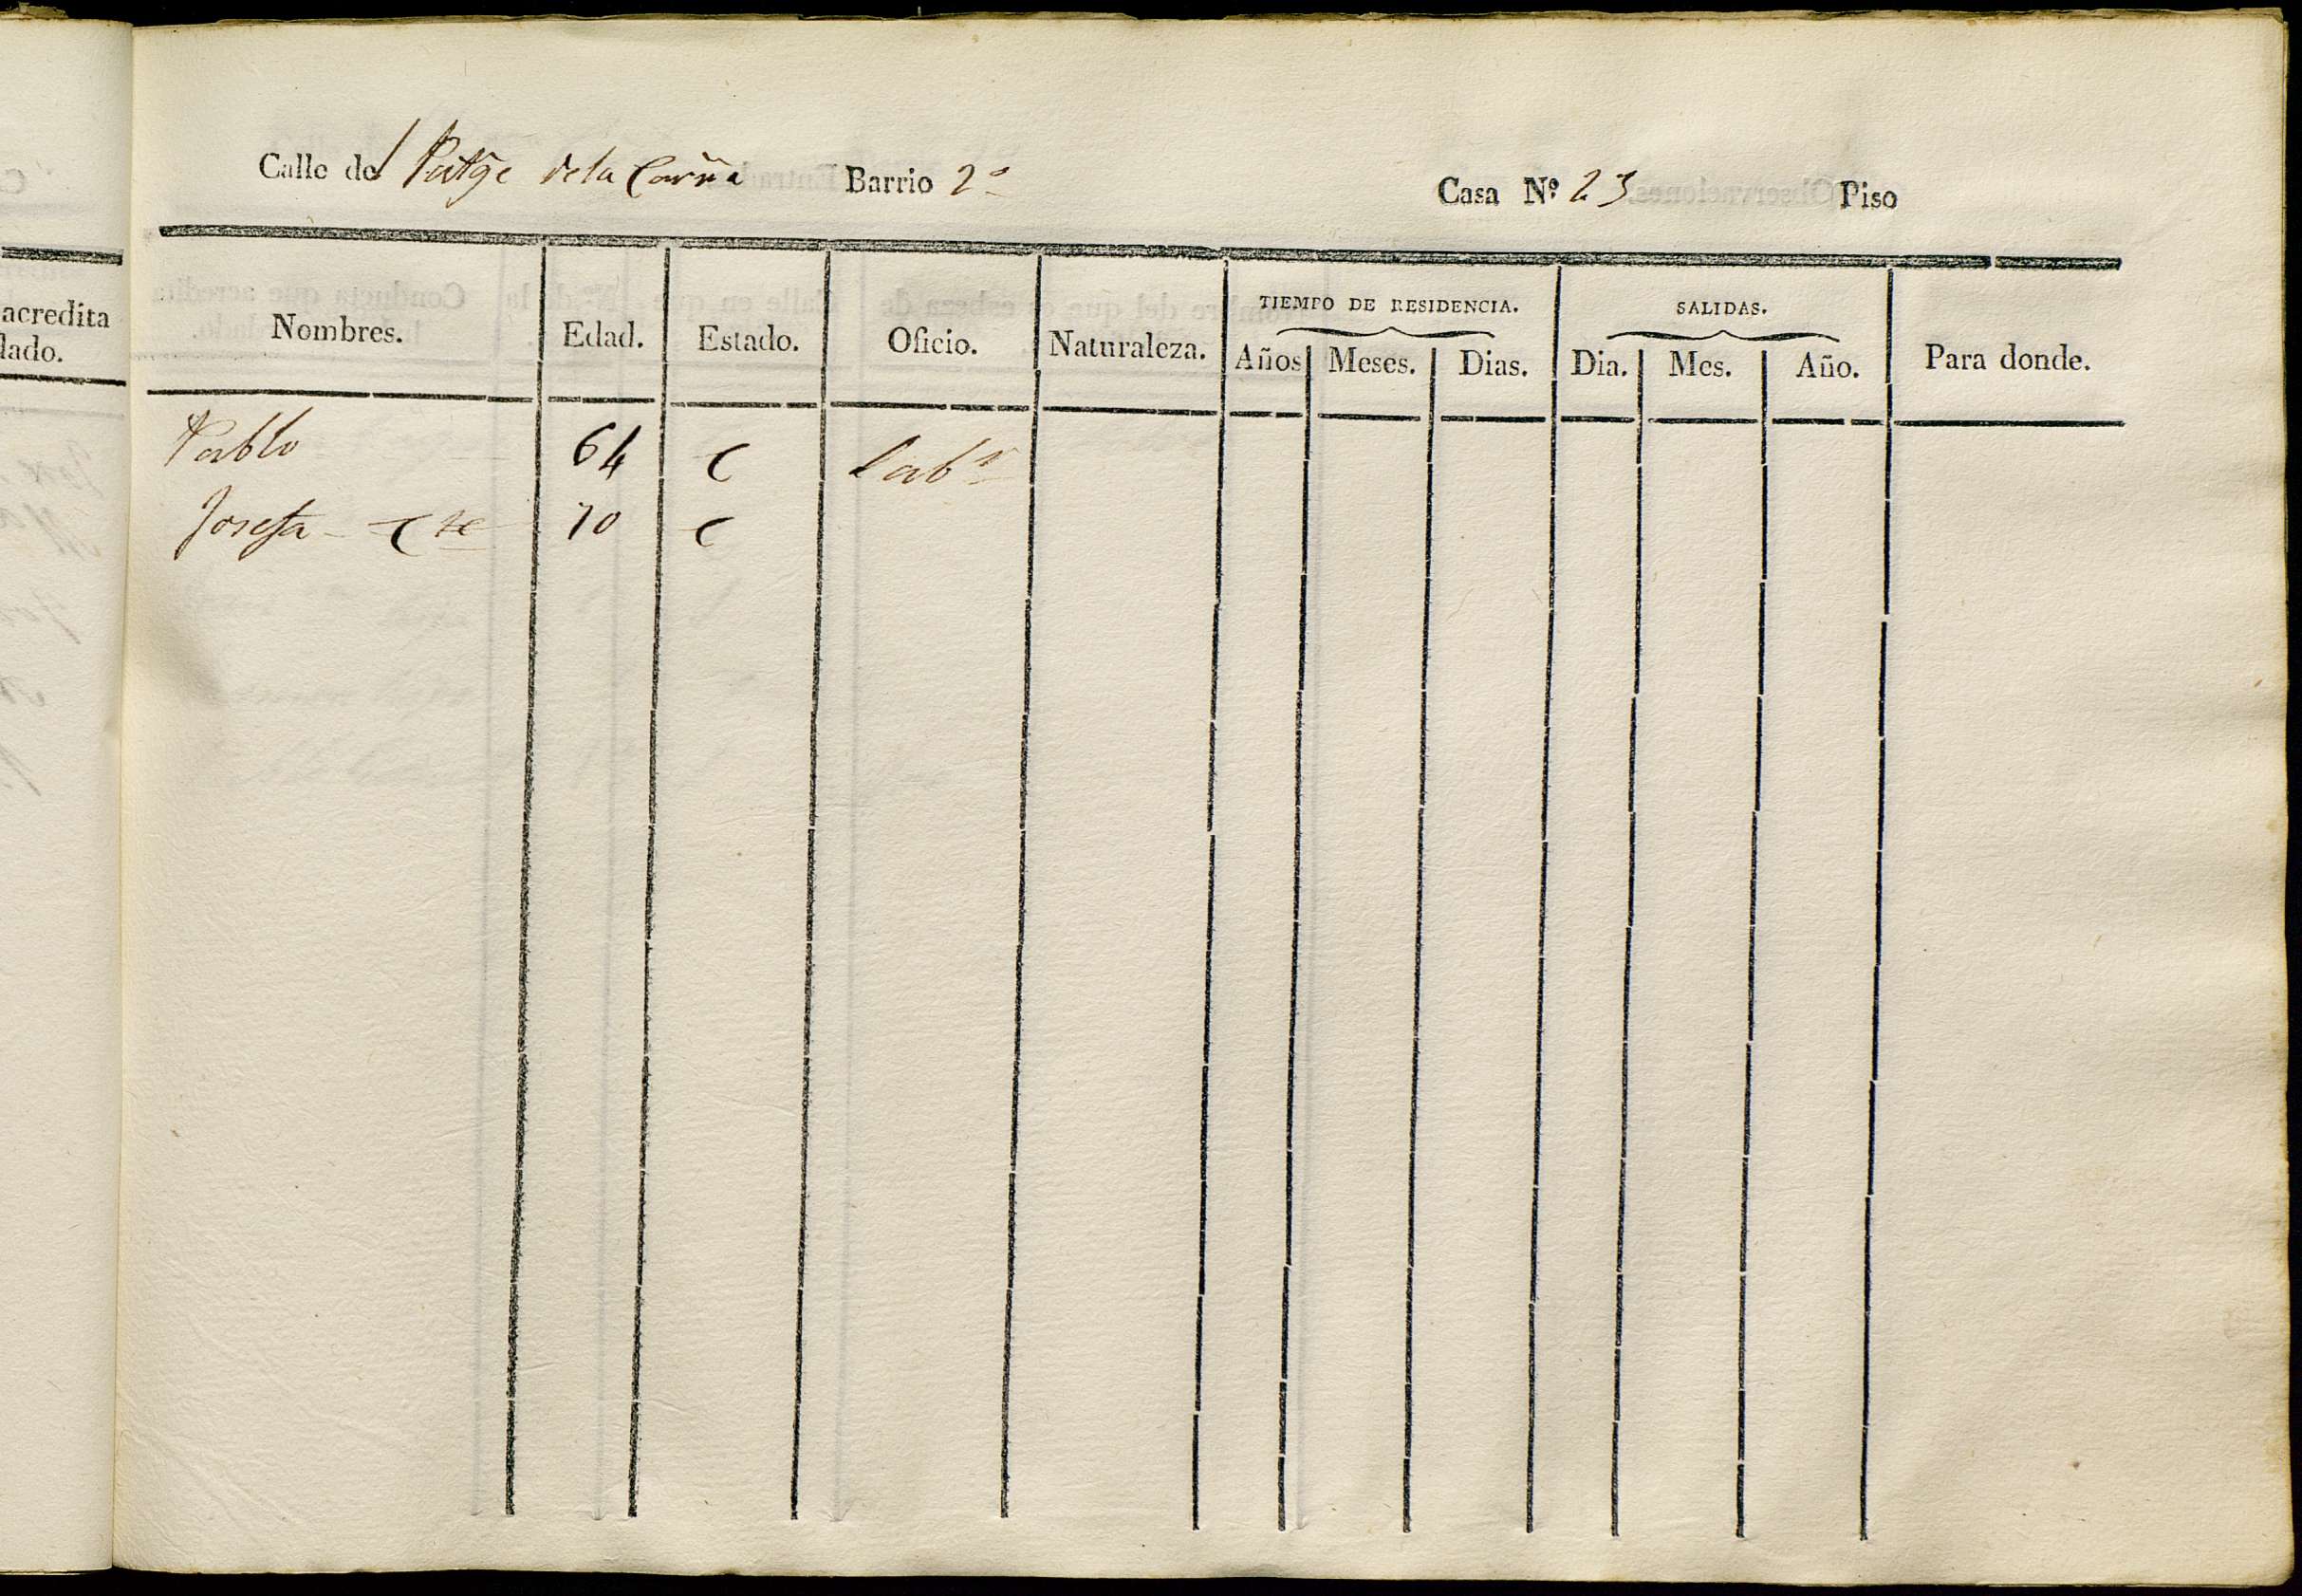 acredita
lado.
Calle del Patge de la Barrio 2º Casa Nº 23 Piso
Nombres. Edad. Estado. Oficio. Naturaleza. TIEMPO DE RESIDENCIA. Años Meses. Dias. SALIDAS. Dia. Mes. Año. Para donde.
Pablo 64 C Labr
Josefa 70 C